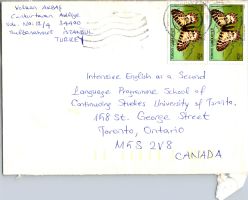 Volkan AKBAŞ
Cankurtaran
No: 34400
Sultanahmet İSTANBUL
TURKEY
Intensive English as a Second
Language Programme School of
Continuing Studies University of Toronto.
158 St. George Street
Toronto, Ontario
M5S 2V8
CANADA